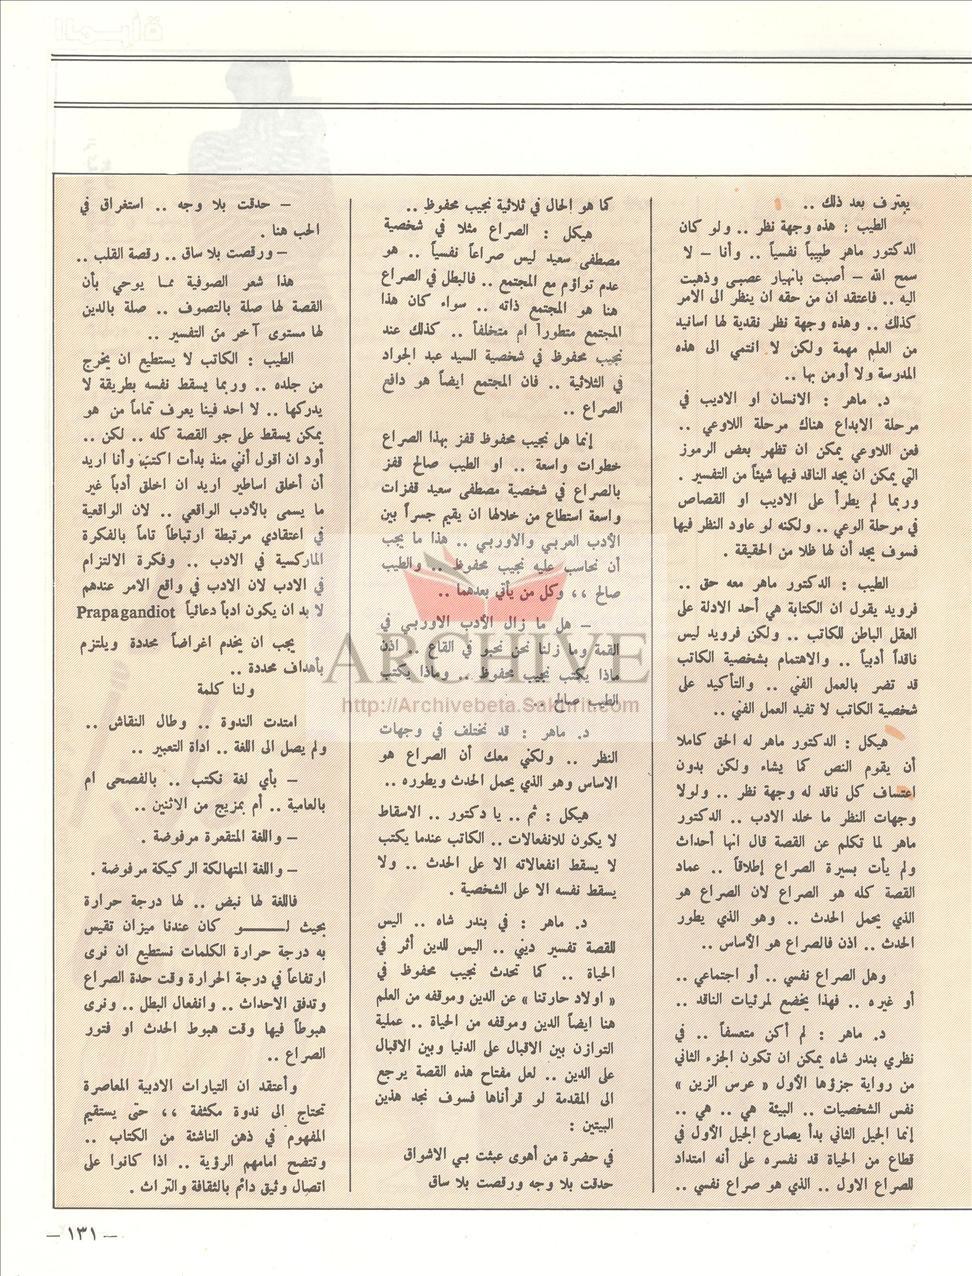 يعترف بعد ذلك ..
الطيب : هذه وجهة نظر .. ولو كان
الدكتور ماهر طبيباً نفسياً .. وأنا - لا
سمح الله - أصبت بانهيار عصبي وذهبت
اليه .. فاعتقد ان من حقه ان ينظر الى الامر
كذلك .. وهذه وجهة نظر نقدية لها اسانيد
من العلم مهمة ولكن لا انتمي الى هذه
المدرسة ولا أومن بها ..
د. ماهر : الانسان او الاديب في
مرحلة الابداع هناك مرحلة اللاوعي ..
فعن اللاوعي يمكن ان تظهر بعض الرموز
التي يمكن ان يجد الناقد فيها شيئاً من التفسير .
وربما لم يطرأ على الاديب او القصاص
في مرحلة الوعي .. ولكنه لو عاود النظر فيها
فسوف يجد أن لها ظلا من الحقيقة .
الطيب : الدكتور ماهر معه حق ..
فرويد يقول ان الكتابة هي أحد الادلة على
العقل الباطن للكاتب .. ولكن فرويد ليس
ناقداً أدبياً .. والاهتمام بشخصية الكاتب
قد تضر بالعمل الفني .. والتأكيد على
شخصية الكاتب لا تفيد العمل الفني ..
هيكل : الدكتور ماهر له الحق كاملا
أن يقوم النص كما يشاء ولكن بدون
اعتساف كل ناقد له وجهة نظر .. ولولا
وجهات النظر ما خلد الادب .. الدكتور
ماهر لما تكلم عن القصة قال انها أحداث
ولم يأت بسيرة الصراع إطلاقاً .. عماد
القصة كله هو الصراع لان الصراع هو
الذي يحمل الحدث .. وهو الذي يطور
الحدث .. اذن فالصراع هو الأساس ..
وهل الصراع نفسي .. أو اجتماعي ..
أو غيره .. فهذا يخضع لمرئيات الناقد ..
د. ماهر : لم أكن متعسفاً .. في
نظري بندر شاه يمكن ان تكون الجزء الثاني
من رواية جزؤها الأول « عرس الزين »
نفس الشخصيات .. البيئة هي .. هي ..
إنما الجيل الثاني بدأ يصارع الجيل الأول في
قطاع من الحياة قد نفسره على أنه امتداد
للصراع الاول .. الذي هو صراع نفسي ..
كما هو الحال في ثلاثية نجيب محفوظ ..
هيكل : الصراع مثلا في شخصية
مصطفى سعيد ليس صراعاً نفسياً .. هو
عدم تواؤم مع المجتمع .. فالبطل في الصراع
هنا هو المجتمع ذاته .. سواء كان هذا
المجتمع متطوراً ام متخلفاً .. كذلك عند
نجيب محفوظ في شخصية السيد عبد الجواد
في الثلاثية .. فان المجتمع ايضاً هو دافع
الصراع ..
إنما هل نجيب محفوظ قفز بهذا الصراع
خطوات واسعة .. او الطيب صالح قفز
بالصراع في شخصية مصطفى سعيد قفزات
واسعة استطاع من خلالها ان يقيم جسراً بين
الأدب العربي والاوربي .. هذا ما يجب
أن نحاسب عليه نجيب محفوظ .. والطيب
صالح ،، وكل من يأتي بعدهما ..
- هل ما زال الأدب الاوربي في
القمة وما زلنا نحن نحبو في القاع .. اذن
ماذا يكتب نجيب محفوظ .. وماذا يكتب
الطيب صالح ..
د. ماهر : قد نختلف في وجهات
النظر .. ولكني معك أن الصراع هو
الاساس وهو الذي يحمل الحدث ويطوره ..
هيكل : ثم .. يا دكتور .. الاسقاط
لا يكون للانفعالات .. الكاتب عندما يكتب
لا يسقط انفعالاته الا على الحدث .. ولا
يسقط نفسه الا على الشخصية .
د. ماهر : في بندر شاه .. اليس
للقصة تفسير ديني .. اليس للدين أثر في
الحياة .. كما تحدث نجيب محفوظ في
« اولاد حارتنا » عن الدين وموقفه من العلم
هنا ايضاً الدين وموقفه من الحياة .. عملية
التوازن بين الاقبال على الدنيا وبين الاقبال
على الدين .. لعل مفتاح هذه القصة يرجع
الى المقدمة لو قرأناها فسوف نجد هذين
البيتين :
في حضرة من أهوى عبثت بي الاشواق
حدقت بلا وجه ورقصت بلا ساق
- حدقت بلا وجه .. استغراق في
الحب هنا .
- ورقصت بلا ساق .. رقصة القلب ..
هذا شعر الصوفية مما يوحي بأن
القصة لها صلة بالتصوف .. صلة بالدين
لها مستوى آخر من التفسير ..
الطيب : الكاتب لا يستطيع ان يخرج
من جلده .. وربما يسقط نفسه بطريقة لا
يدركها .. لا احد فينا يعرف تماماً من هو
يمكن يسقط على جو القصة كله .. لكن ..
أود ان اقول أنني منذ بدأت اكتب وأنا اريد
أن أخلق اساطير اريد ان اخلق أدباً غير
ما يسمى بالأدب الواقعي .. لان الواقعية
في اعتقادي مرتبطة ارتباطاً تاماً بالفكرة
الماركسية في الادب .. وفكرة الالتزام
في الادب لان الادب في واقع الامر عندهم
لا بد ان يكون ادباً دعائياً Prapagandiot
يجب ان يخدم اغراضاً محددة ويلتزم
بأهداف محددة ..
ولنا كلمة
امتدت الندوة .. وطال النقاش ..
ولم يصل الى اللغة .. اداة التعبير ..
- بأي لغة نكتب .. بالفصحى ام
بالعامية .. أم بمزيج من الاثنين ..
- واللغة المتقعرة مرفوضة .
- واللغة المتهالكة الركيكة مرفوضة .
فاللغة لها نبض .. لها درجة حرارة
بحيث لو كان عندنا ميزان تقيس
به درجة حرارة الكلمات نستطيع ان نرى
ارتفاعاً في درجة الحرارة وقت حدة الصراع
وتدفق الاحداث .. وانفعال البطل .. ونرى
هبوطاً فيها وقت هبوط الحدث او فتور
الصراع ..
وأعتقد ان التيارات الادبية المعاصرة
تحتاج الى ندوة مكثفة ،، حتى يستقيم
المفهوم في ذهن الناشئة من الكتاب ..
وتتضح امامهم الرؤية .. اذا كانوا على
اتصال وثيق دائم بالثقافة والتراث .
- ١٣١ -
ARCHIVE
http://Archivebeta.Sakhrit.com